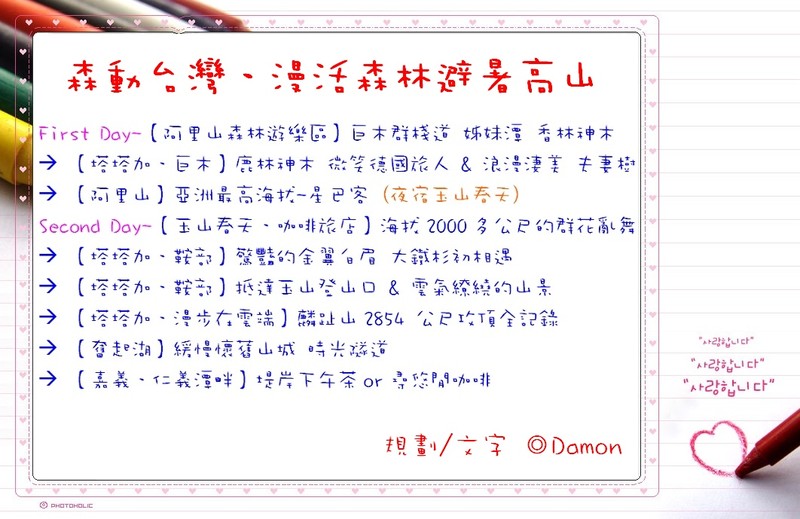 森動台灣、漫活森林避暑高山
First Day~【阿里山森林遊樂區】巨木群棧道 姊妹潭 香林神木
→ 【塔塔加、巨木】鹿林神木 微笑德國旅人 & 浪漫淒美 夫妻樹
→ 【阿里山】亞洲最高海拔~星巴客 (夜宿玉山春天)
Second Day~【玉山春天、咖啡旅店】海拔 2000 多公尺的群花亂舞
→ 【塔塔加、鞍部】驚豔的金翼白眉 大鐵杉初相遇
→ 【塔塔加、鞍部】抵達玉山登山口 & 雲氣繚繞的山景
→ 【塔塔加、漫步在雲端】麟趾山 2854 公尺攻頂全記錄
→ 【奮起湖】緩慢懷舊山城 時光隧道
→ 【嘉義、仁義潭畔】堤岸下午茶 or 尋悠閒咖啡
規劃/文字 ◎Damon
"사랑합니다"
"사랑합니다"
"사랑합니다"
PHOTOHOLIC